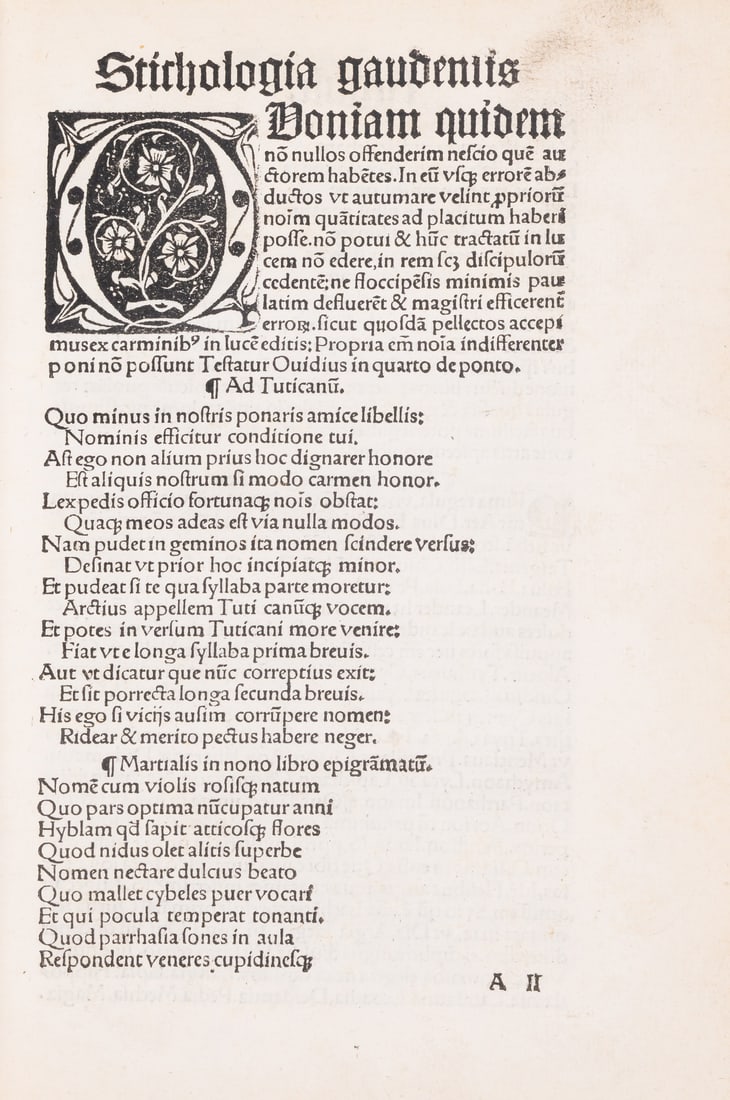 Stichologia gaudentis
QVoniam quidem
nō nullos offenderim nescio quē au
ctorem habētes. In eū vsqꝫ errorē ab⸗
ductos vt autumare velint ꝓpriorū
noīm quātitates ad placitum haberi
posse. nō potui & hūc tractatū in lu
cem nō edere, in rem scꝫ discipulorū
cedentē; ne floccipēsis minimis pau
latim defluerēt & magistri efficerent
errorꝝ. sicut quosdā pellectos accepi
mus ex carminibꝰ in lucē editis: Propria em̄ noīa indifferenter
poni nō possunt Testatur Ouidius in quarto de ponto.
¶ Ad Tuticanū.
Quo minus in nostris ponaris amice libellis:
Nominis efficitur conditione tui.
Ast ego non alium prius hoc dignarer honore
Est aliquis nostrum si modo carmen honor.
Lex pedis officio fortunaqꝫ noīs obstat:
Quaqꝫ meos adeas est via nulla modos.
Nam pudet in geminos ita nomen scindere versus:
Desinat vt prior hoc incipiatqꝫ minor.
Et pudeat si te qua syllaba parte moretur:
Arctius appellem Tuti canūqꝫ vocem.
Et potes in versum Tuticani more venire:
Fiat vt e longa syllaba prima breuis.
Aut vt dicatur que nūc correptius exit:
Et sit porrecta longa secunda breuis.
His ego si vicijs ausim corrūpere nomen:
Ridear & merito pectus habere neger.
¶ Martialis in nono libro epigrāmatū.
Nomē cum violis rosisqꝫ natum
Quo pars optima nūcupatur anni
Hyblam qd̄ sapit atticosqꝫ flores
Quod nidus olet alitis superbe
Nomen nectare dulcius beato
Quo mallet cybeles puer vocari
Et qui pocula temperat tonanti.
Quod parrhasia sones in aula
Respondent veneres cupidinesqꝫ
A II